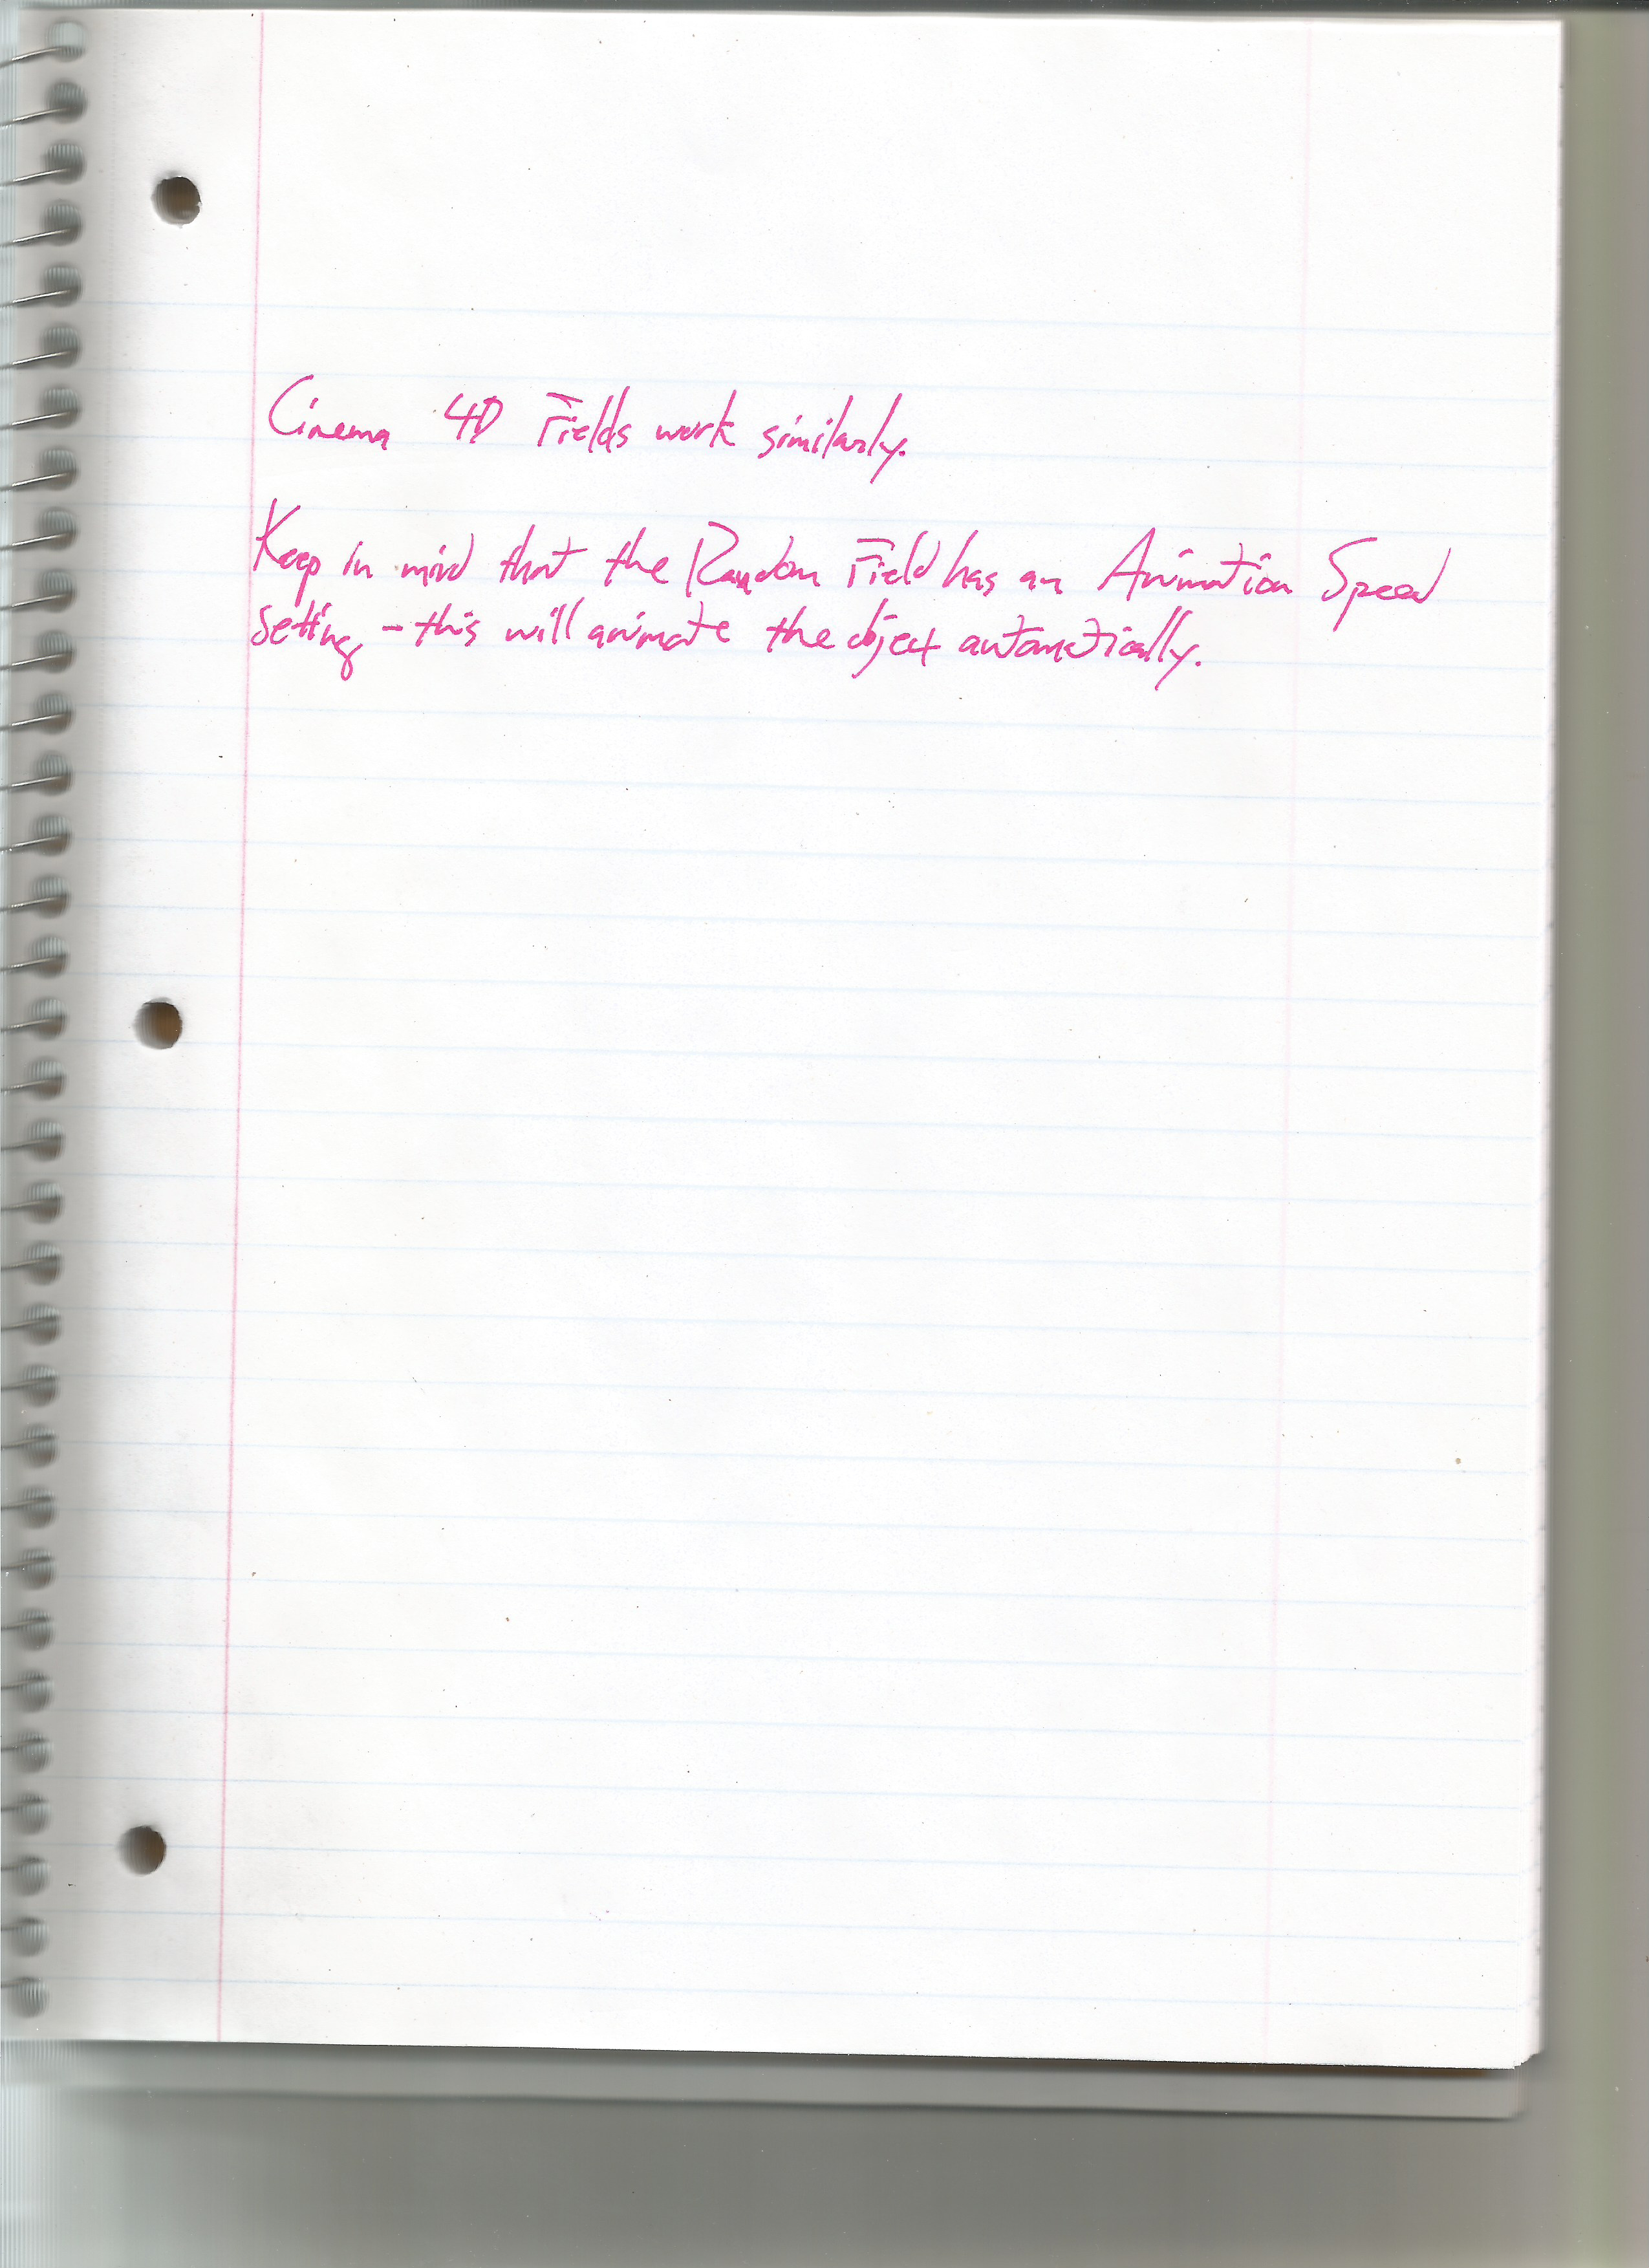 Cinema 4D Fields work similarly.
Keep in mind that the Random Field has an Animation Speed
Setting - this will animate the object automatically.